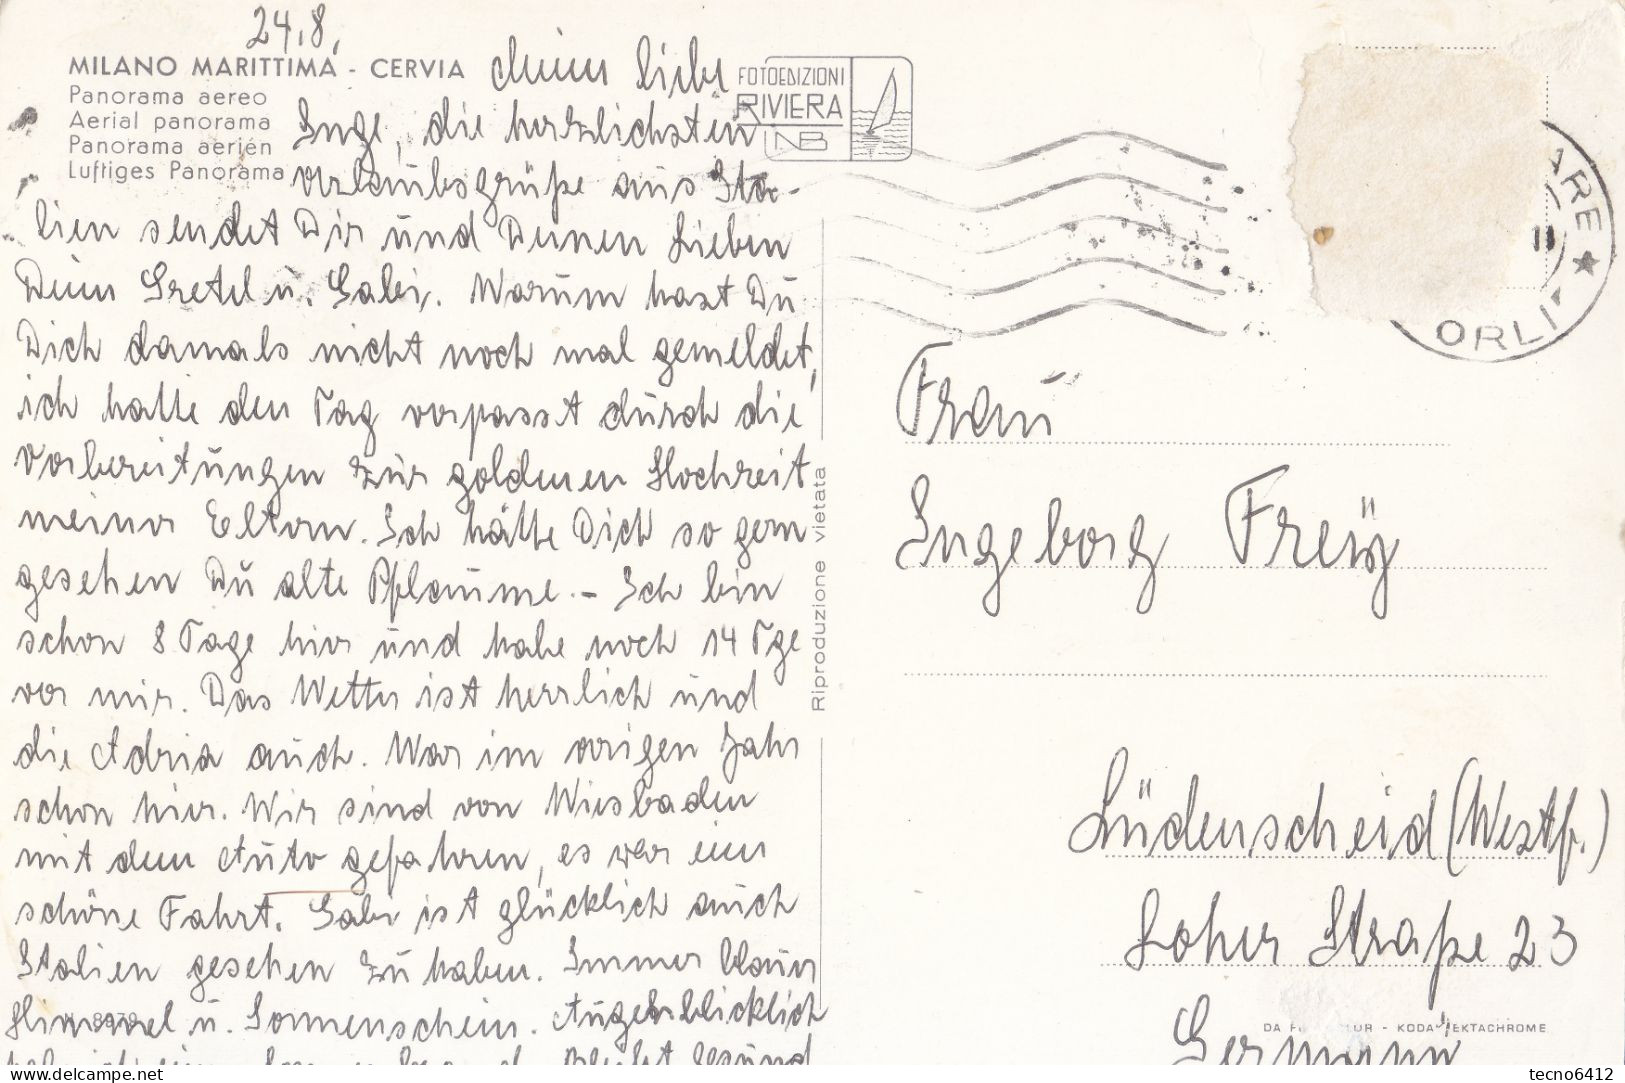 24.8.
MILANO MARITTIMA - CERVIA
Panorama aereo
Aerial panorama
Panorama aerién
Luftiges Panorama
FOTOEDIZIONI
RIVIERA
Meine liebe
Inge, die herzlichsten
Urlaubsgrüße aus Ita-
lien sendet Dir und Deinen Lieben
Deine Gretel u. Gabi. Warum hast Du
Dich damals nicht noch mal gemeldet,
ich hatte den Tag verpasst durch die
Vorbereitungen zur goldenen Hochzeit
meiner Eltern. Ich hätte Dich so gern
gesehen Du alte Pflaume. - Ich bin
schon 8 Tage hier und habe noch 14 Tge
vor mir. Das Wetter ist herrlich und
die Adria auch. War im vorigen Jahr
schon hier. Wir sind von Wiesbaden
mit dem Auto gefahren, es war eine
schöne Fahrt. Gabi ist glücklich auch
Italien gesehen zu haben. Immer blauer
Himmel u. Sonnenschein. Augenblicklich
Bleibt gesund
Riproduzione vietata
ARE ★
ORLI
Frau
Ingeborg Freÿ
Lüdenscheid (Westf.)
Loher Straße 23
Germania
- KODAK EKTACHROME
delcampe.net
tecno6412